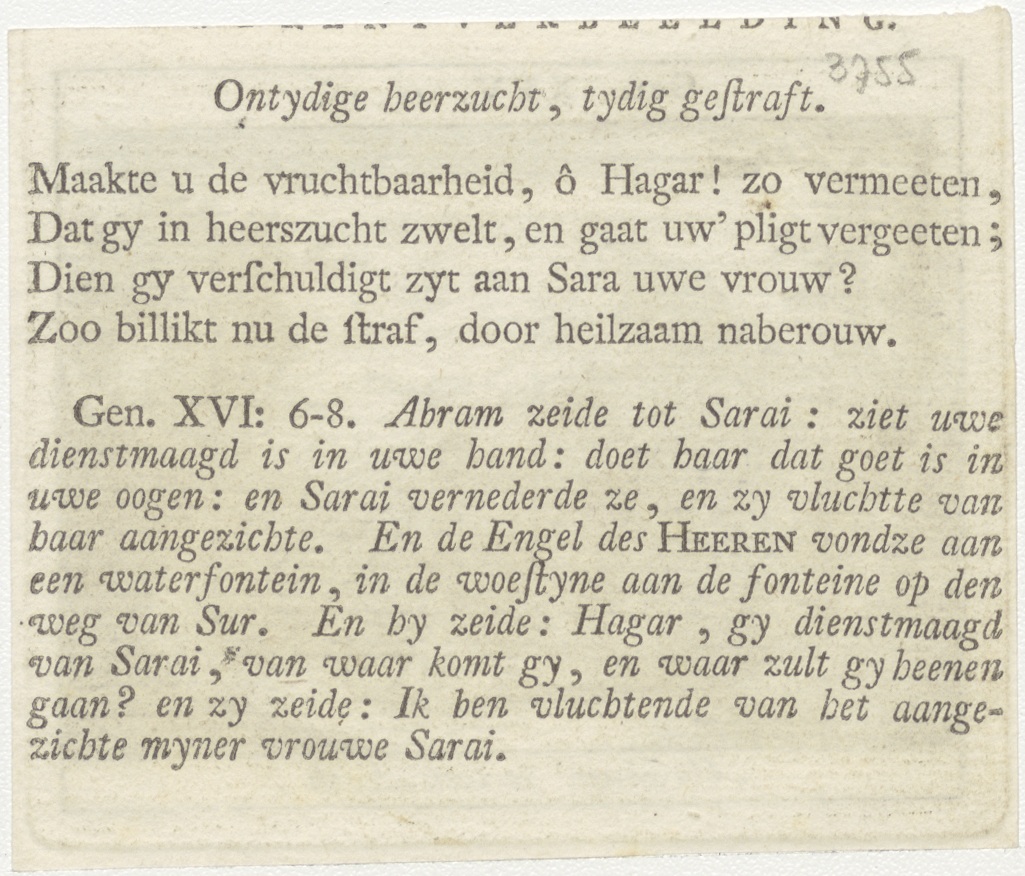 3755
Ontydige heerzucht, tydig geſtraft.
Maakte u de vruchtbaarheid, ô Hagar! zo vermeeten,
Dat gy in heerszucht zwelt, en gaat uw' pligt vergeeten;
Dien gy verſchuldigt zyt aan Sara uwe vrouw?
Zoo billikt nu de ſtraf, door heilzaam naberouw.
Gen. XVI: 6-8. Abram zeide tot Sarai: ziet uwe
dienstmaagd is in uwe hand: doet haar dat goet is in
uwe oogen: en Sarai vernederde ze, en zy vluchtte van
haar aangezichte. En de Engel des HEEREN vondze aan
een waterfontein, in de woeſtyne aan de fonteine op den
weg van Sur. En hy zeide: Hagar, gy dienstmaagd
van Sarai, van waar komt gy, en waar zult gy heenen
gaan? en zy zeide: Ik ben vluchtende van het aange-
zichte myner vrouwe Sarai.